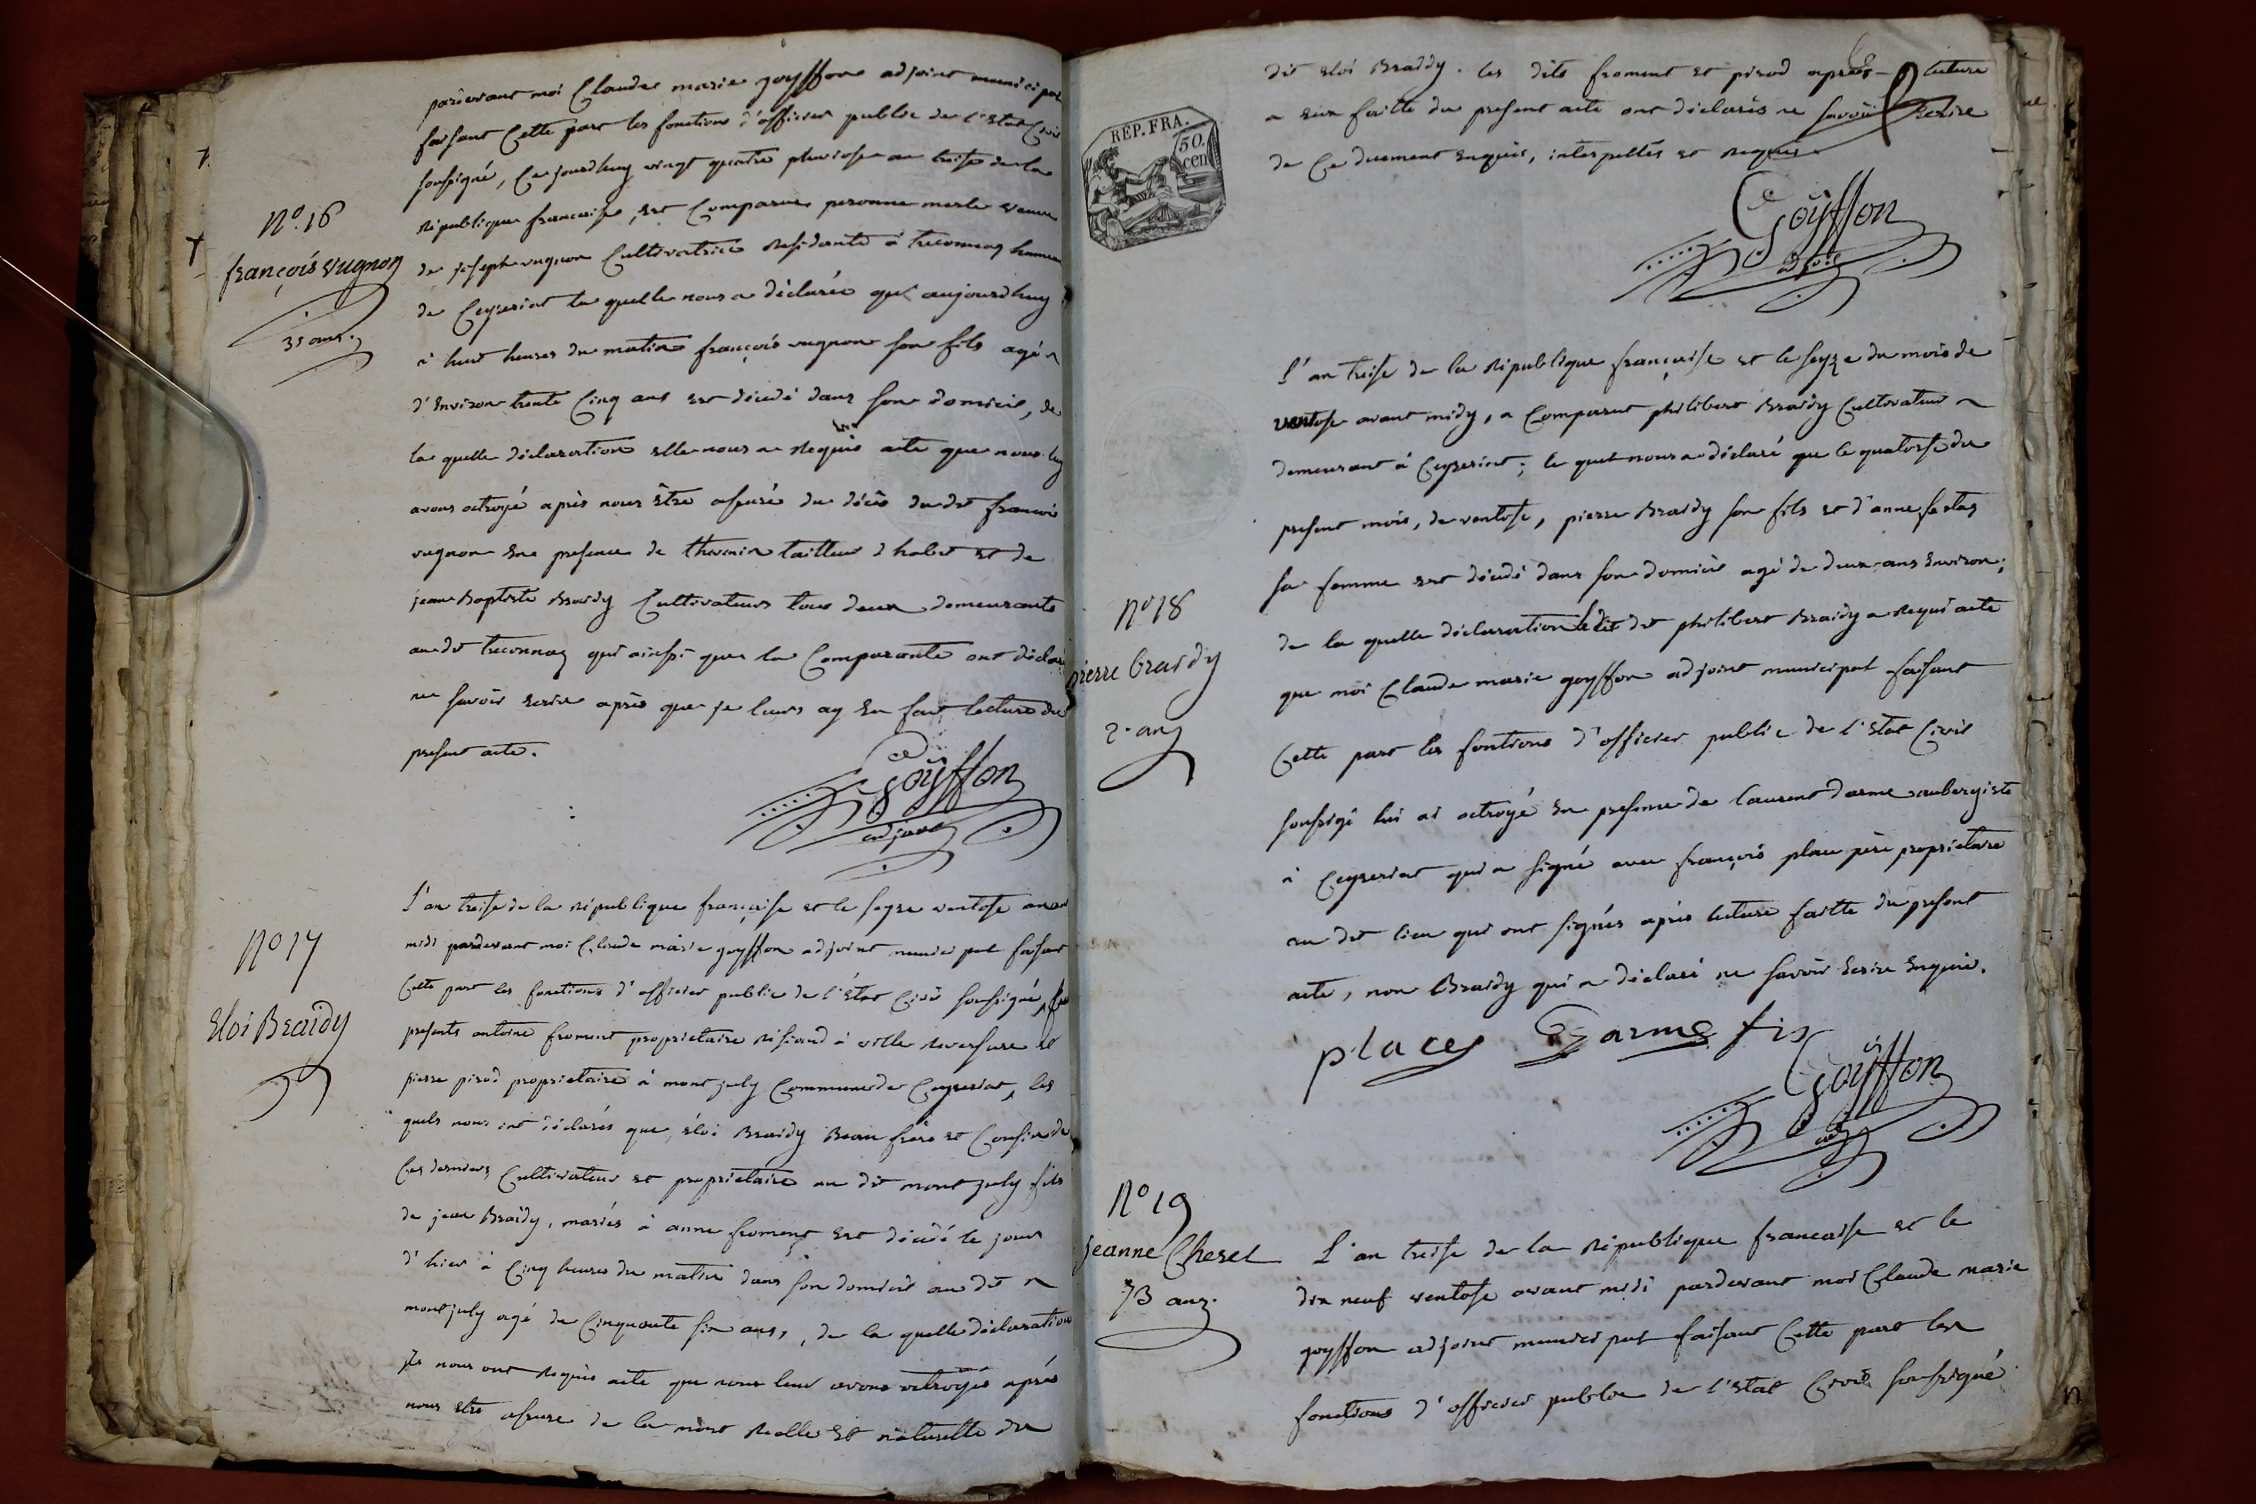 pardevant moi Claude marie goyffon adjoint municipal
faisant Cette part les fonctions d'officier public de l'Etat Civil
soussigné, Ce jourdhuy vingt quatre pluviose an treise de la
N°. 16
Republique francaise, est Comparue peronne merle veuve
françois vugnon
de joseph vugnon Cultivatrice Residante à treconnaz hameau
35 ans.
de Ceyzeriat la quelle nous a déclarée que aujourdhuy
à huit heures du matin françois vugnon son fils agé
d'Environ trente Cinq ans est décédé dans son domicile, de
la quelle déclaration elle nous a Requis acte que nous luy
avons octroyé après nous être assuré du décès dudit francois
vugnon En presence de thevenin tailleur d habit et de
jean Baptiste Braidy Cultivateurs tous deux demeurants
audit treconnaz qui ainsi que la Comparante ont déclaré
ne savoir Ecrire après que je leurs ay En fait lecture du
present acte.
Goÿffon
adjoint
L'an treise de la république française et le seyze ventose avant
N° 17
midi pardevant moi Claude marie goyffon adjoint municipal faisant
Cette part les fonctions d'officier public de l'état Civil soussigné,
Eloi Braidy
presents antoine froment propriétaire Résidant à ville Reversure et
pierre pirod propriétaire à mont july Commune de Ceyzeriat, les
quels nous ont déclarés que, éloi Braidy Beau frère et Cousin de
Ces derniers Cultivateur et propriétaire au dit mont july fils
de jean Braidy, mariés à anne froment est décédé le jour
d'hier à Cinq heures du matin dans son domicile au dit
mont july agé de Cinquante six ans, de la quelle déclaration
ils nous ont Requis acte que nous leur avons octroyés après
nous être assuré de la mort Réelle Et naturelle du
dit Eloi Braidy. les dits froment et pirod après lecture
a Eux faitte du present acte ont déclarés ne savoir Ecrire
de Ce duement Enquis, interpellés et Requis
REP. FRA.
50.
cen
Goÿffon
adjoint
L'an treise de la République française et le seyze du mois de
ventose avant midy, a Comparut philibert Braidy Cultivateur
demeurant à Ceyzeriat; le quel nous a déclaré que le quatorse du
present mois, de ventose, pierre Braidy son fils et d'anne
sa femme est décédé dans son domicile agé de deux ans Environ;
N° 18
de la quelle déclaration ledit philibert Braidy a Requi acte
pierre braidy
que moi Claude marie goyffon adjoint municipal faisant
2. an
Cette part les fontions d'officier public de l'Etat Civil
soussigné lui ai octroyé En presence de laurent darme aubergiste
à Ceyzeriat qui a signé avec françois place père propriétaire
au dit lieu qui ont signés après lecture faitte du present
acte, non Braidy qui a déclaré ne savoir Ecrire Enquis.
places Darme fis
Goÿffon
adj
N° 19
Jeanne Cherel
L'an treise de la République francaise et le
73 ans.
dix neuf ventose avant midi pardevant moi Claude marie
goyffon adjoint municipal faisant Cette part les
fonctions d'officier public de l'Etat Civil soussigné